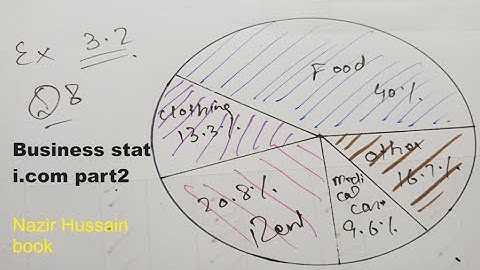 Ex 3.2
Q8
Business stat
i.com part2
Nazir Hussain
book
Food
40%
Clothing
13.3%
20.8%
Rent
medi
cal
care
9.6%
other
16.7%